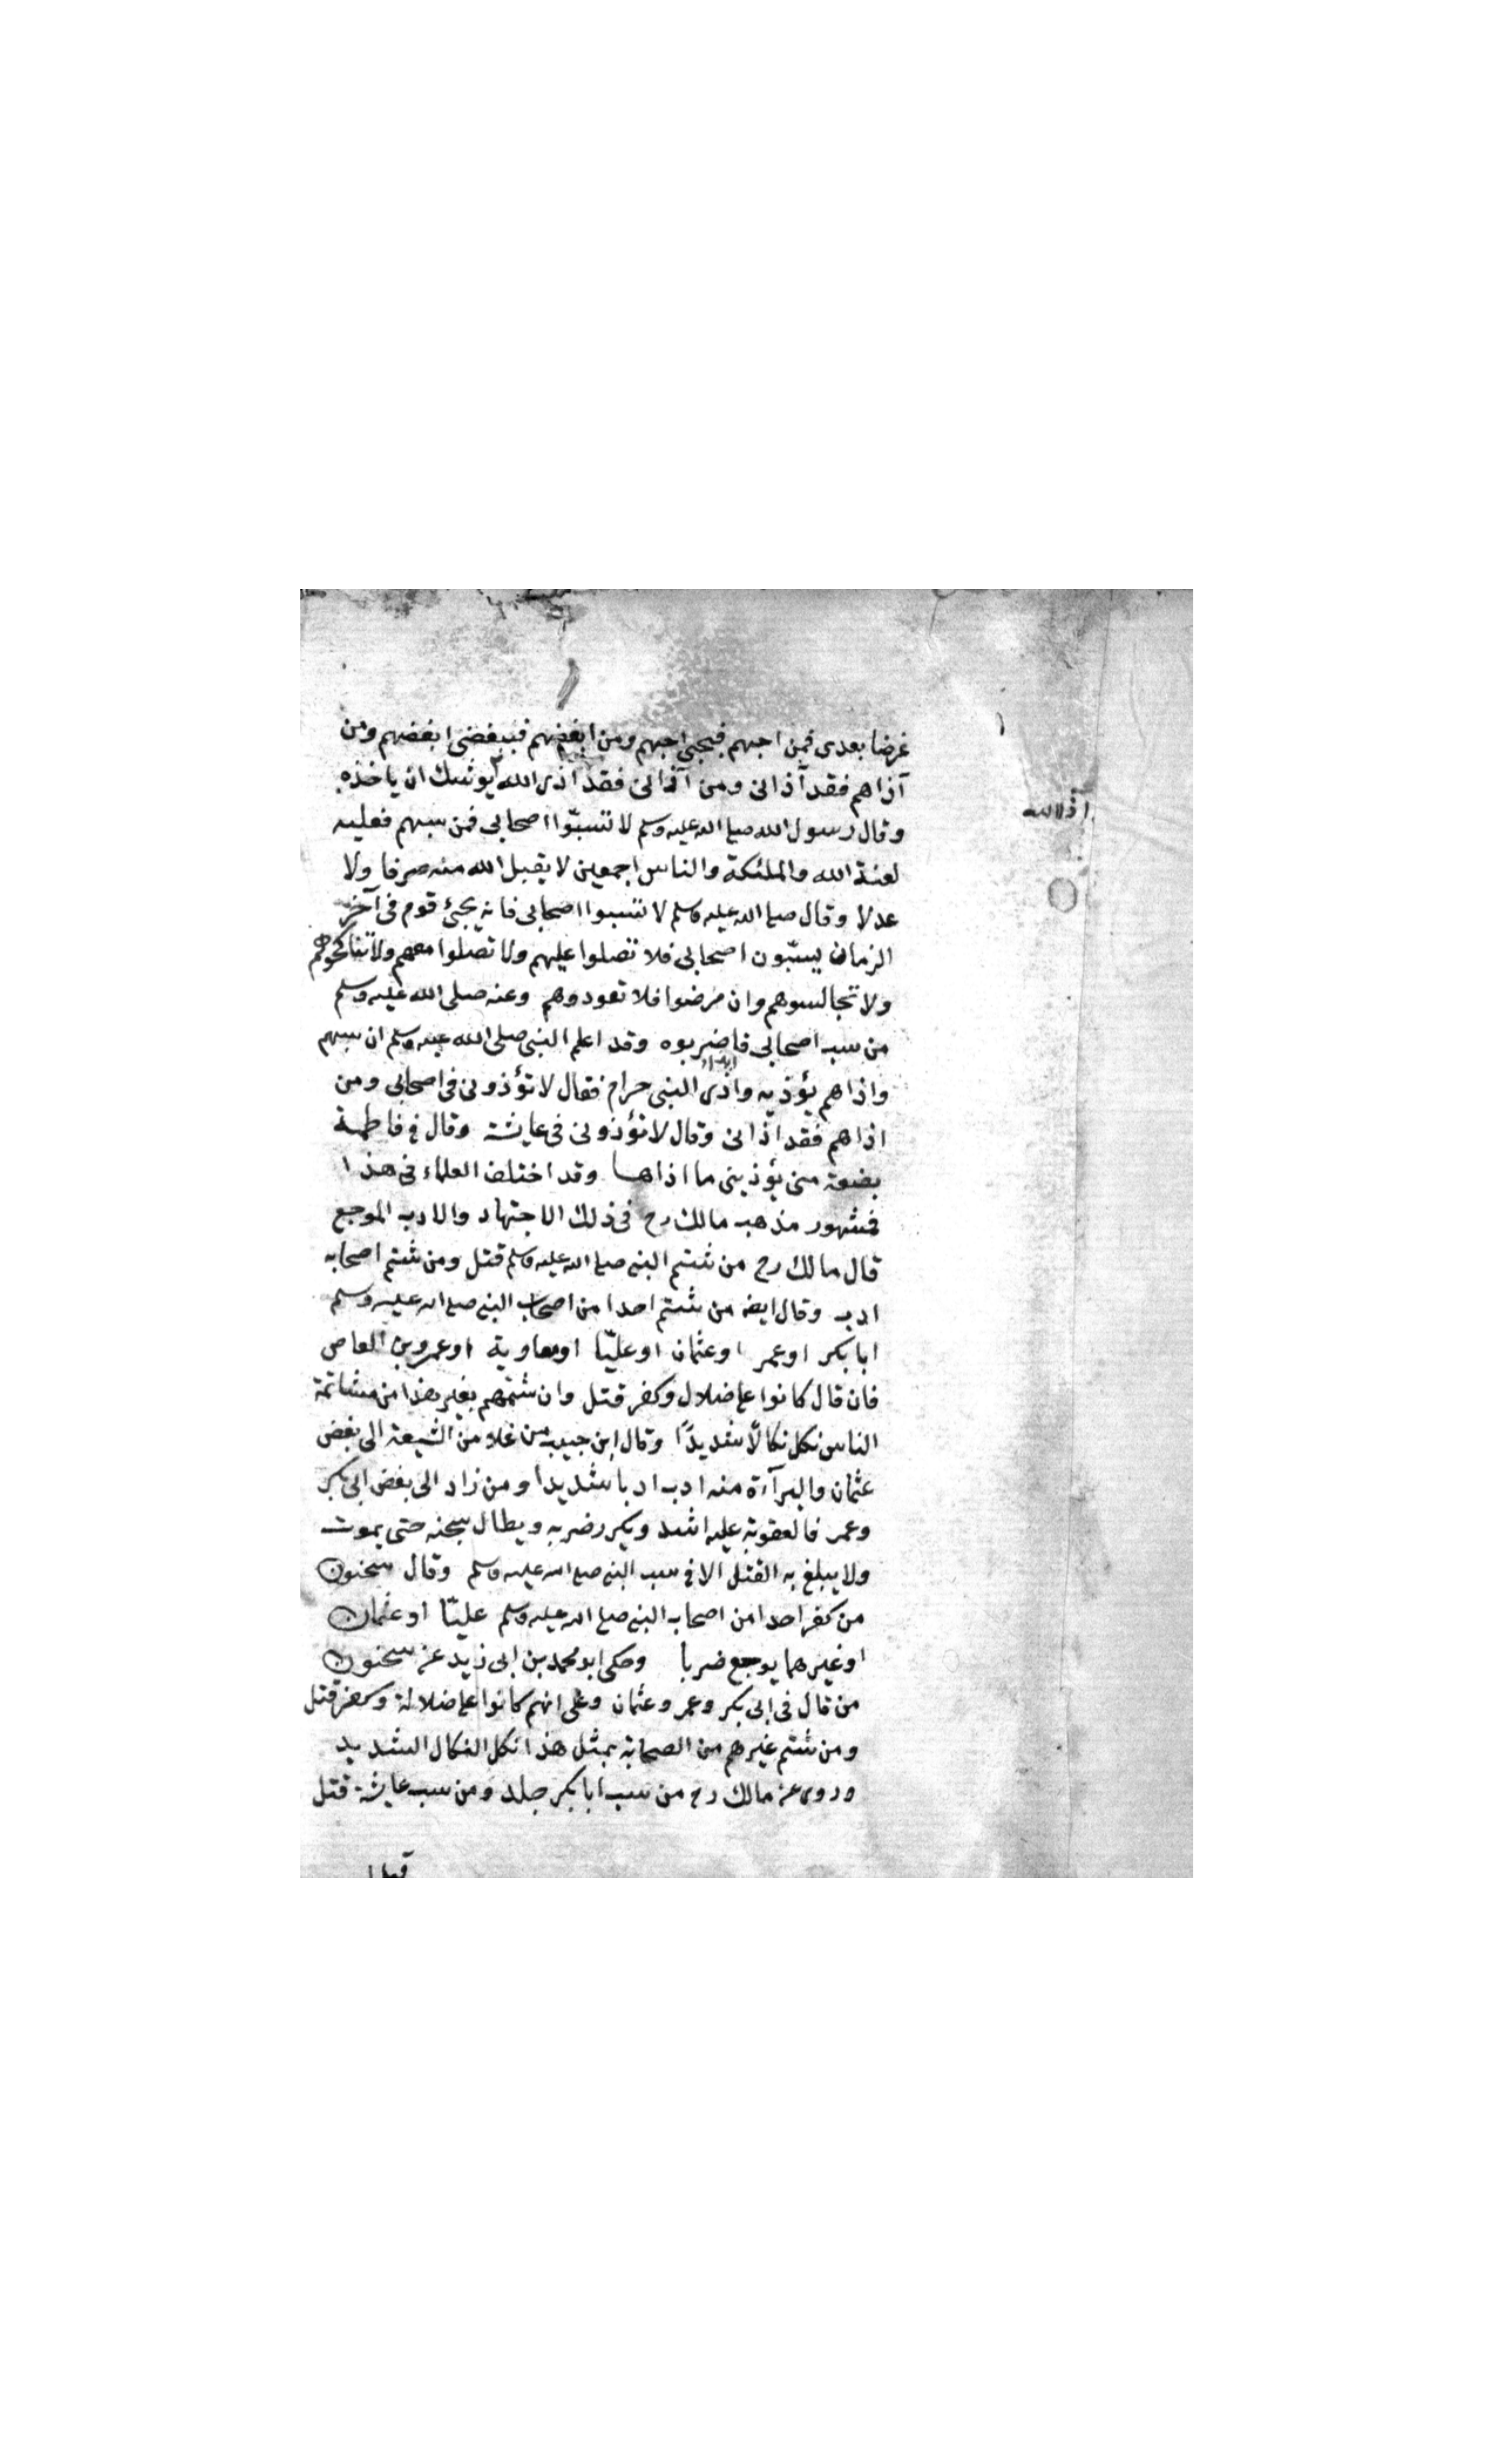 غرضا بعدى فمن احبهم فبحبى احبهم ومن ابغضهم فببغضى ابغضهم ومن
آذاهم فقد آذانى ومن آذانى فقد اذى الله يوشك ان ياخذه
اذى الله
وقال رسول الله صلى الله عليه وسلم لا تسبّوا اصحابى فمن سبهم فعليه
لعنة الله والملئكة والناس اجمعين لا يقبل الله منه صرفا ولا
عدلا وقال صلى الله عليه وسلم لا تسبوا اصحابى فانه يجئ قوم فى آخر
الزمان يسبّون اصحابى فلا تصلوا عليهم ولا تصلوا معهم ولا تناكحوهم
ولا تجالسوهم وان مرضوا فلا تعودوهم وعنه صلى الله عليه وسلم
من سب اصحابى فاضربوه وقد اعلم النبى صلى الله عليه وسلم ان سبهم
واذاهم يؤذيه واذى النبى حرام فقال لا تؤذونى فى اصحابى ومن
اذاهم فقد اذانى وقال لا تؤذونى فى عايشة وقال فى فاطمة
بضعة منى يؤذينى ما اذاها وقد اختلف العلماء فى هذا
فمشهور مذهب مالك رح فى ذلك الاجتهاد والادب الموجع
قال مالك رح من شتم النبى صلى الله عليه وسلم قتل ومن شتم اصحابه
ادب وقال ايضا من شتم احدا من اصحاب النبى صلى الله عليه وسلم
ابا بكر او عمر او عثمان او عليّا او معاوية او عمرو بن العاص
فان قال كانوا على ضلال وكفر قتل وان شتمهم بغير هذا من مشاتمة
الناس نكل نكالا شديدًا وقال ابن حبيب من غلا من الشيعة الى بغض
عثمان والبرآءة منه ادب ادبا شديدا ومن زاد الى بغض ابى بكر
وعمر فالعقوبة عليه اشد ويكرر ضربه ويطال سجنه حتى يموت
ولا يبلغ به القتل الا فى سب النبى صلى الله عليه وسلم وقال سحنون
من كفر احدا من اصحاب النبى صلى الله عليه وسلم عليّا او عثمان
او غيرهما يوجع ضربا وحكى ابو محمد بن ابى زيد عن سحنون
من قال فى ابى بكر وعمر وعثمان وعلى انهم كانوا على ضلالة وكفر قتل
ومن شتم غيرهم من الصحابة بمثل هذا نكل النكال الشديد
وروى عن مالك رح من سب ابا بكر جلد ومن سب عايشة قتل